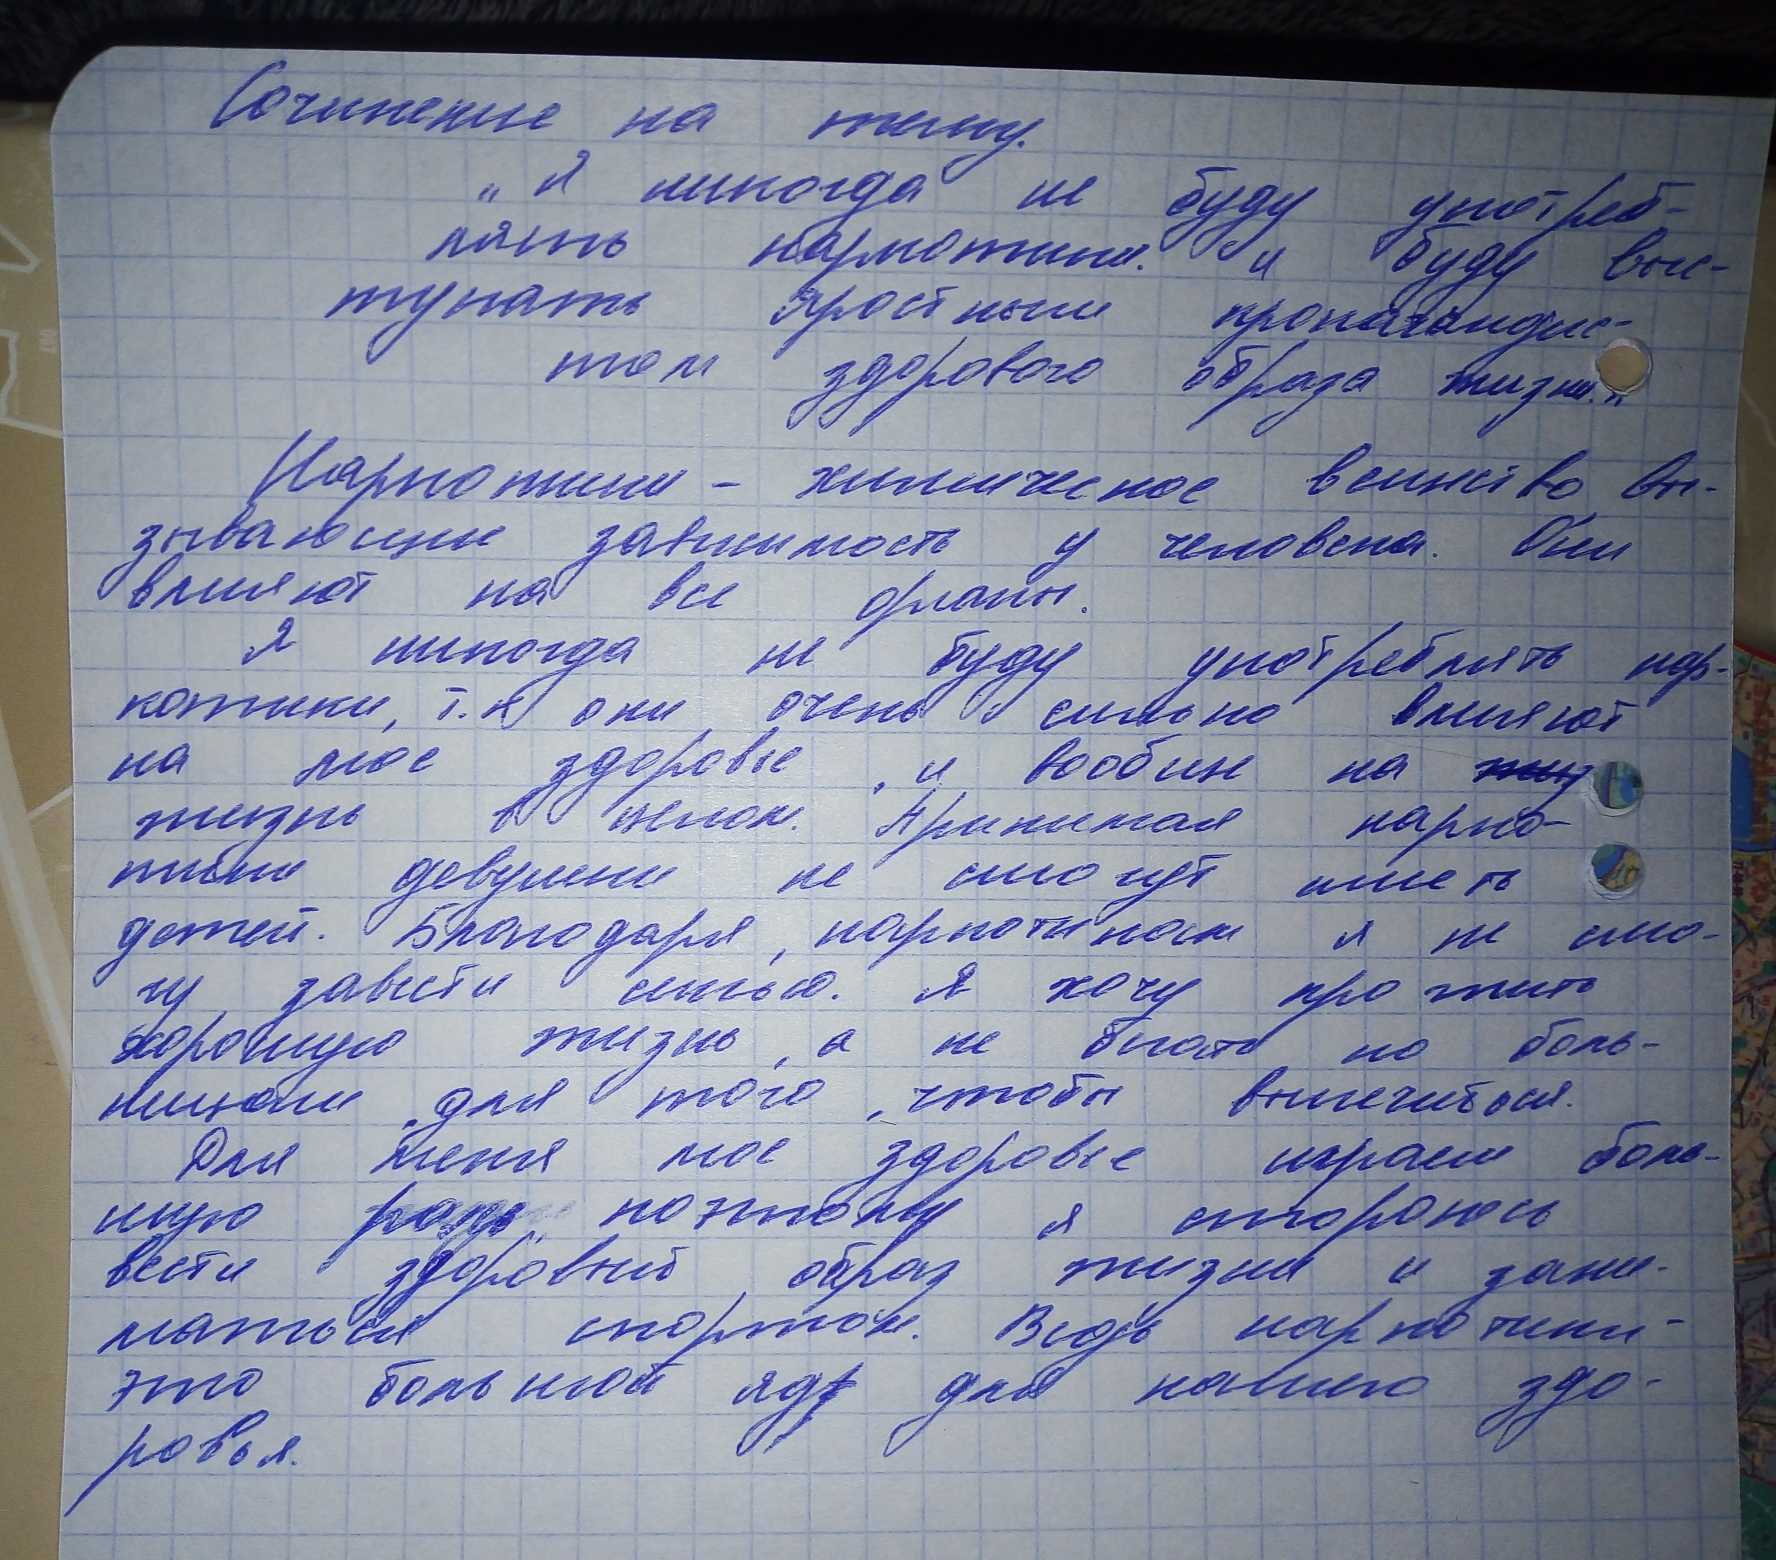 Сочинение на тему.
„Я никогда не буду употреб-
лять наркотики. и буду выс-
тупать яростным пропагандис-
том здорового образа жизни."
Наркотики - химическое вещество вы-
зывающие зависимость у человека. Они
влияют на все органы.
Я никогда не буду употреблять нар-
котики, т.к они очень сильно влияют
на мое здоровье, и вообще на
жизнь в целом. Принимая нарко-
тики девушки не смогут иметь
детей. Благодаря, наркотикам я не смо-
гу завести семью. Я хочу прожить
хорошую жизнь, а не бегать по боль-
ницам, для того, чтобы вылечиться.
Для меня мое здоровье играет боль-
шую роль, поэтому я стороюсь
вести здоровый образ жизни и зани-
маться спортом. Ведь наркотики-
это большой яд для нашего здо-
ровья.